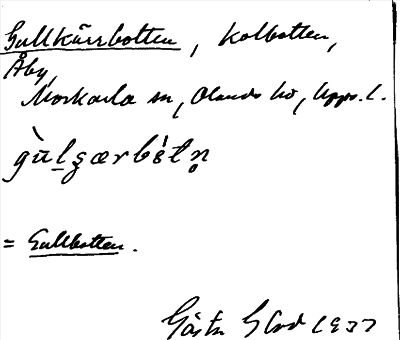 Gullkärrbotten, Kolbotten,
Åby,
Morkarla sn, Olands hd, Upps. l.
= Gullbotten.
Gösta 1937